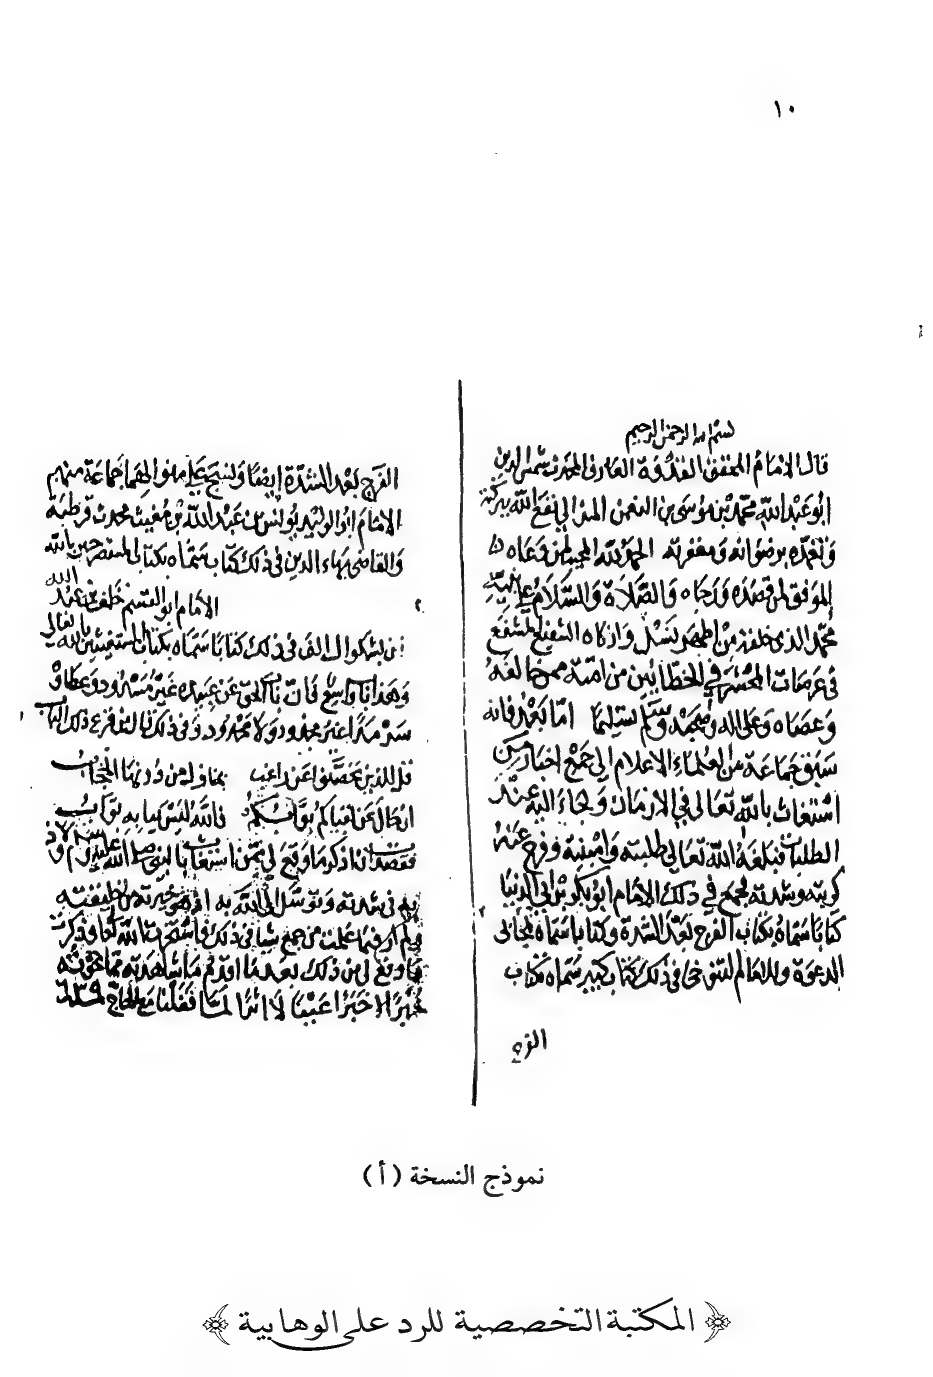 ١٠
بسم الله الرحمن الرحيم
قال الامام المحقق القدوة العارف المحدث شمس الدين
ابو عبد الله محمد بن موسى بن النعمن المزالي نفع الله ببركته
وتغمده برضوانه ومغفرته الحمد لله المجيب لمن دعاه
الموفق لمن قصده ورجاه والصلاة والسلام على نبيه
محمد الذي خلقه من اطهر نسل وازكاه الشفيع المشفع
في عرصات المحشر في الخطائين من امته ممن خالفه
وعصاه وعلى اله وصحبه وسلم تسليما اما بعد فانه
سبق جماعة من العلماء الاعلام الى جمع اخبار من
استغاث بالله تعالى في الازمات ولجأ اليه عند
الطلبات فبلغه الله تعالى طلبته وامنيته وفرج عنه
كربته وشدته فجمع في ذلك الامام ابو بكر بن ابي الدنيا
كتابا سماه بكتاب الفرج بعد الشدة وكتابا سماه بمجابي
الدعوة وللامام التنوخي في ذلك كتاب كبير سماه بكتاب
الفرج
الفرج بعد الشدة ايضا ونسج على منوالهما جماعة منهم
الامام ابو الوليد يونس بن عبد الله بن مغيث محدث قرطبة
والقاضي بهاء الدين في ذلك كتاب سماه بكتاب المستصرخين بالله
الامام ابو القسم خلف بن عبد الله
بن بشكوال الف في ذلك كتابا سماه بكتاب المستغيثين بالله تعالى
وهذا باب واسع فان باب الحق عن عبيده غير مسدود وعطاؤه
سرمدا غير مجذوذ ولا محدود وفي ذلك قال من قرع ذلك الباب
قل للذين تحصنوا عن راغب بمنازل من دونها الحجاب
ان حال عن لقياكم بوابكم فالله ليس لبابه بواب
فقصدت ان اذكر ما وقع لي ممن استغاث بالنبي صلى الله عليه وسلم ولاذ
به في شدته وتوسل الى الله به اذ هو خيرته من خليقته
ولم ار فيما علمت من جمع شيا في ذلك فاستخرت الله تعالى وذكرت
ما وقع لي من ذلك بعد ما اقدم ما شاهدته مما تحققته
خبرا لا خبرا عينا لا اثرا لما قفلنا مع الحاج لسنة ٦٣٩
نموذج النسخة ( أ )
﴿ المكتبة التخصصية للرد على الوهابية ﴾